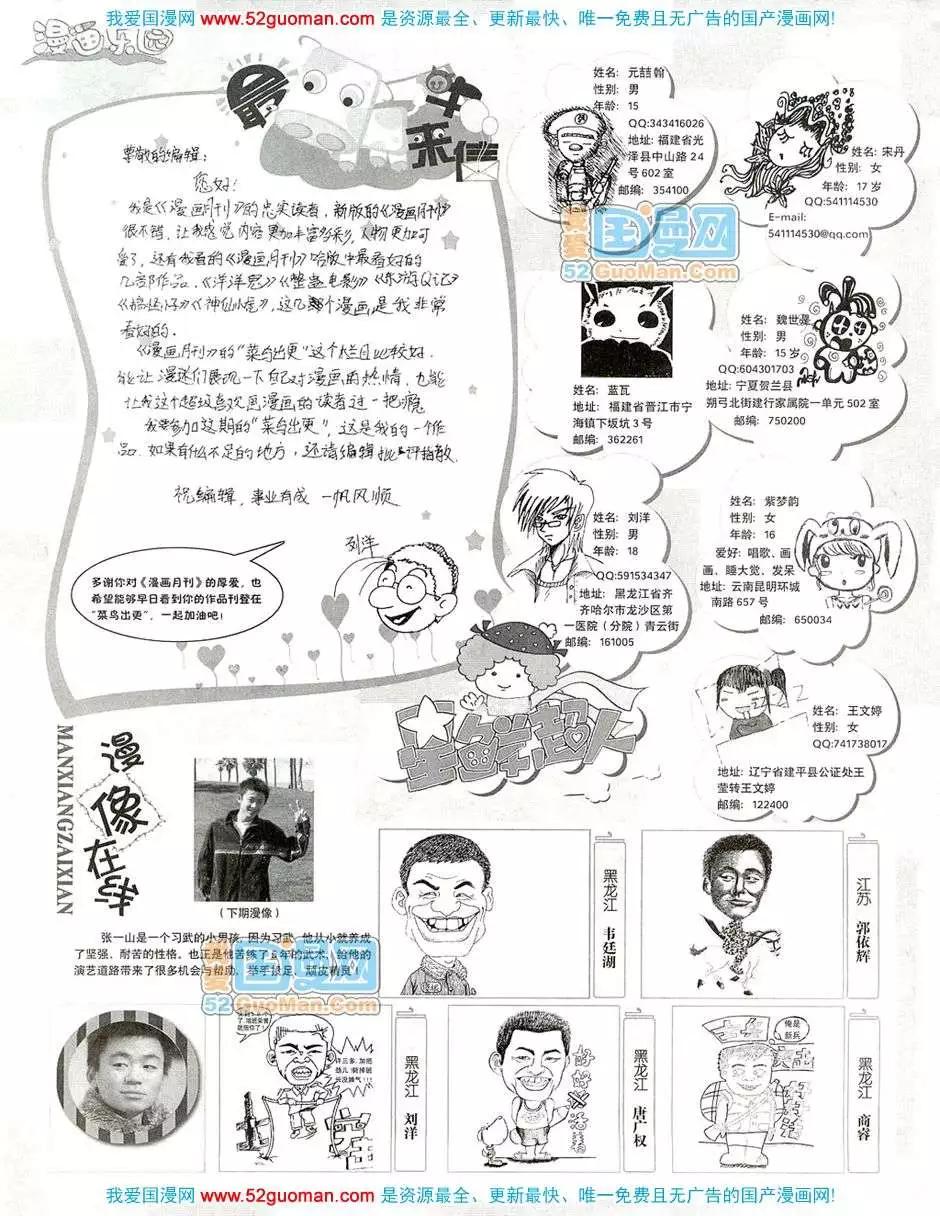 我爱国漫网 www.52guoman.com 是资源最全、更新最快、唯一免费且无广告的国产漫画网!
漫画乐园
最牛来信
尊敬的编辑:
您好!
我是《漫画月刊》的忠实读者,新版的《漫画月刊》
很不错.让我感觉内容更加丰富多彩,人物更加可
爱了,还有我看的《漫画月刊》哈版中最看好的
几部作品.《洋洋兔》《整蛊电影》《东游Q记》
《神仙小怪》,这几个漫画是我非常
看好的.
《漫画月刊》的"菜鸟出更"这个栏目比较好.
能让漫迷们展现一下自己对漫画的热情,也能
让我这个超级喜欢画漫画的读者过一把瘾
我要参加这期的"菜鸟出更",这是我的一个作
品.如果有什么不足的地方,还请编辑批评指教.
祝编辑,事业有成 一帆风顺
刘洋
多谢你对《漫画月刊》的厚爱,也
希望能够早日看到你的作品刊登在
"菜鸟出更",一起加油吧!
姓名: 元喆翰
性别: 男
年龄: 15
QQ:343416026
地址: 福建省光
泽县中山路 24
号 602 室
邮编: 354100
姓名: 宋丹
性别: 女
年龄: 17 岁
QQ:541114530
E-mail:
541114530@qq.com
我爱国漫网
52GuoMan.Com
姓名: 蓝瓦
地址: 福建省晋江市宁
海镇下坂坑 3 号
邮编: 362261
姓名: 魏世晟
性别: 男
年龄: 15 岁
QQ:604301703
地址: 宁夏贺兰县
朔弓北街建行家属院一单元 502 室
邮编: 750200
姓名: 刘洋
性别: 男
年龄: 18
QQ:591534347
地址: 黑龙江省齐
齐哈尔市龙沙区第
一医院(分院)青云街
邮编: 161005
姓名: 紫梦韵
性别: 女
年龄: 16
爱好: 唱歌、画
画、睡大觉、发呆
地址: 云南昆明环城
南路 657 号
邮编: 650034
生鲜超人
姓名: 王文婷
性别: 女
QQ:741738017
地址: 辽宁省建平县公证处王
莹转王文婷
邮编: 122400
漫像在线
MANXIANGZAIXIAN
(下期漫像)
张一山是一个习武的小男孩,因为习武,他从小就养成
了坚强、耐苦的性格。也正是他苦练了五年的武术,给他的
演艺道路带来了很多机会与帮助。举手投足、顽皮精灵!
我爱国漫网
52GuoMan.Com
黑龙江 韦廷湖
江苏 郭依辉
许三多,加把
劲儿!
黑龙江 刘洋
好好活着
黑龙江 唐广权
俺是
新兵
黑龙江 商睿
我爱国漫网 www.52guoman.com 是资源最全、更新最快、唯一免费且无广告的国产漫画网!